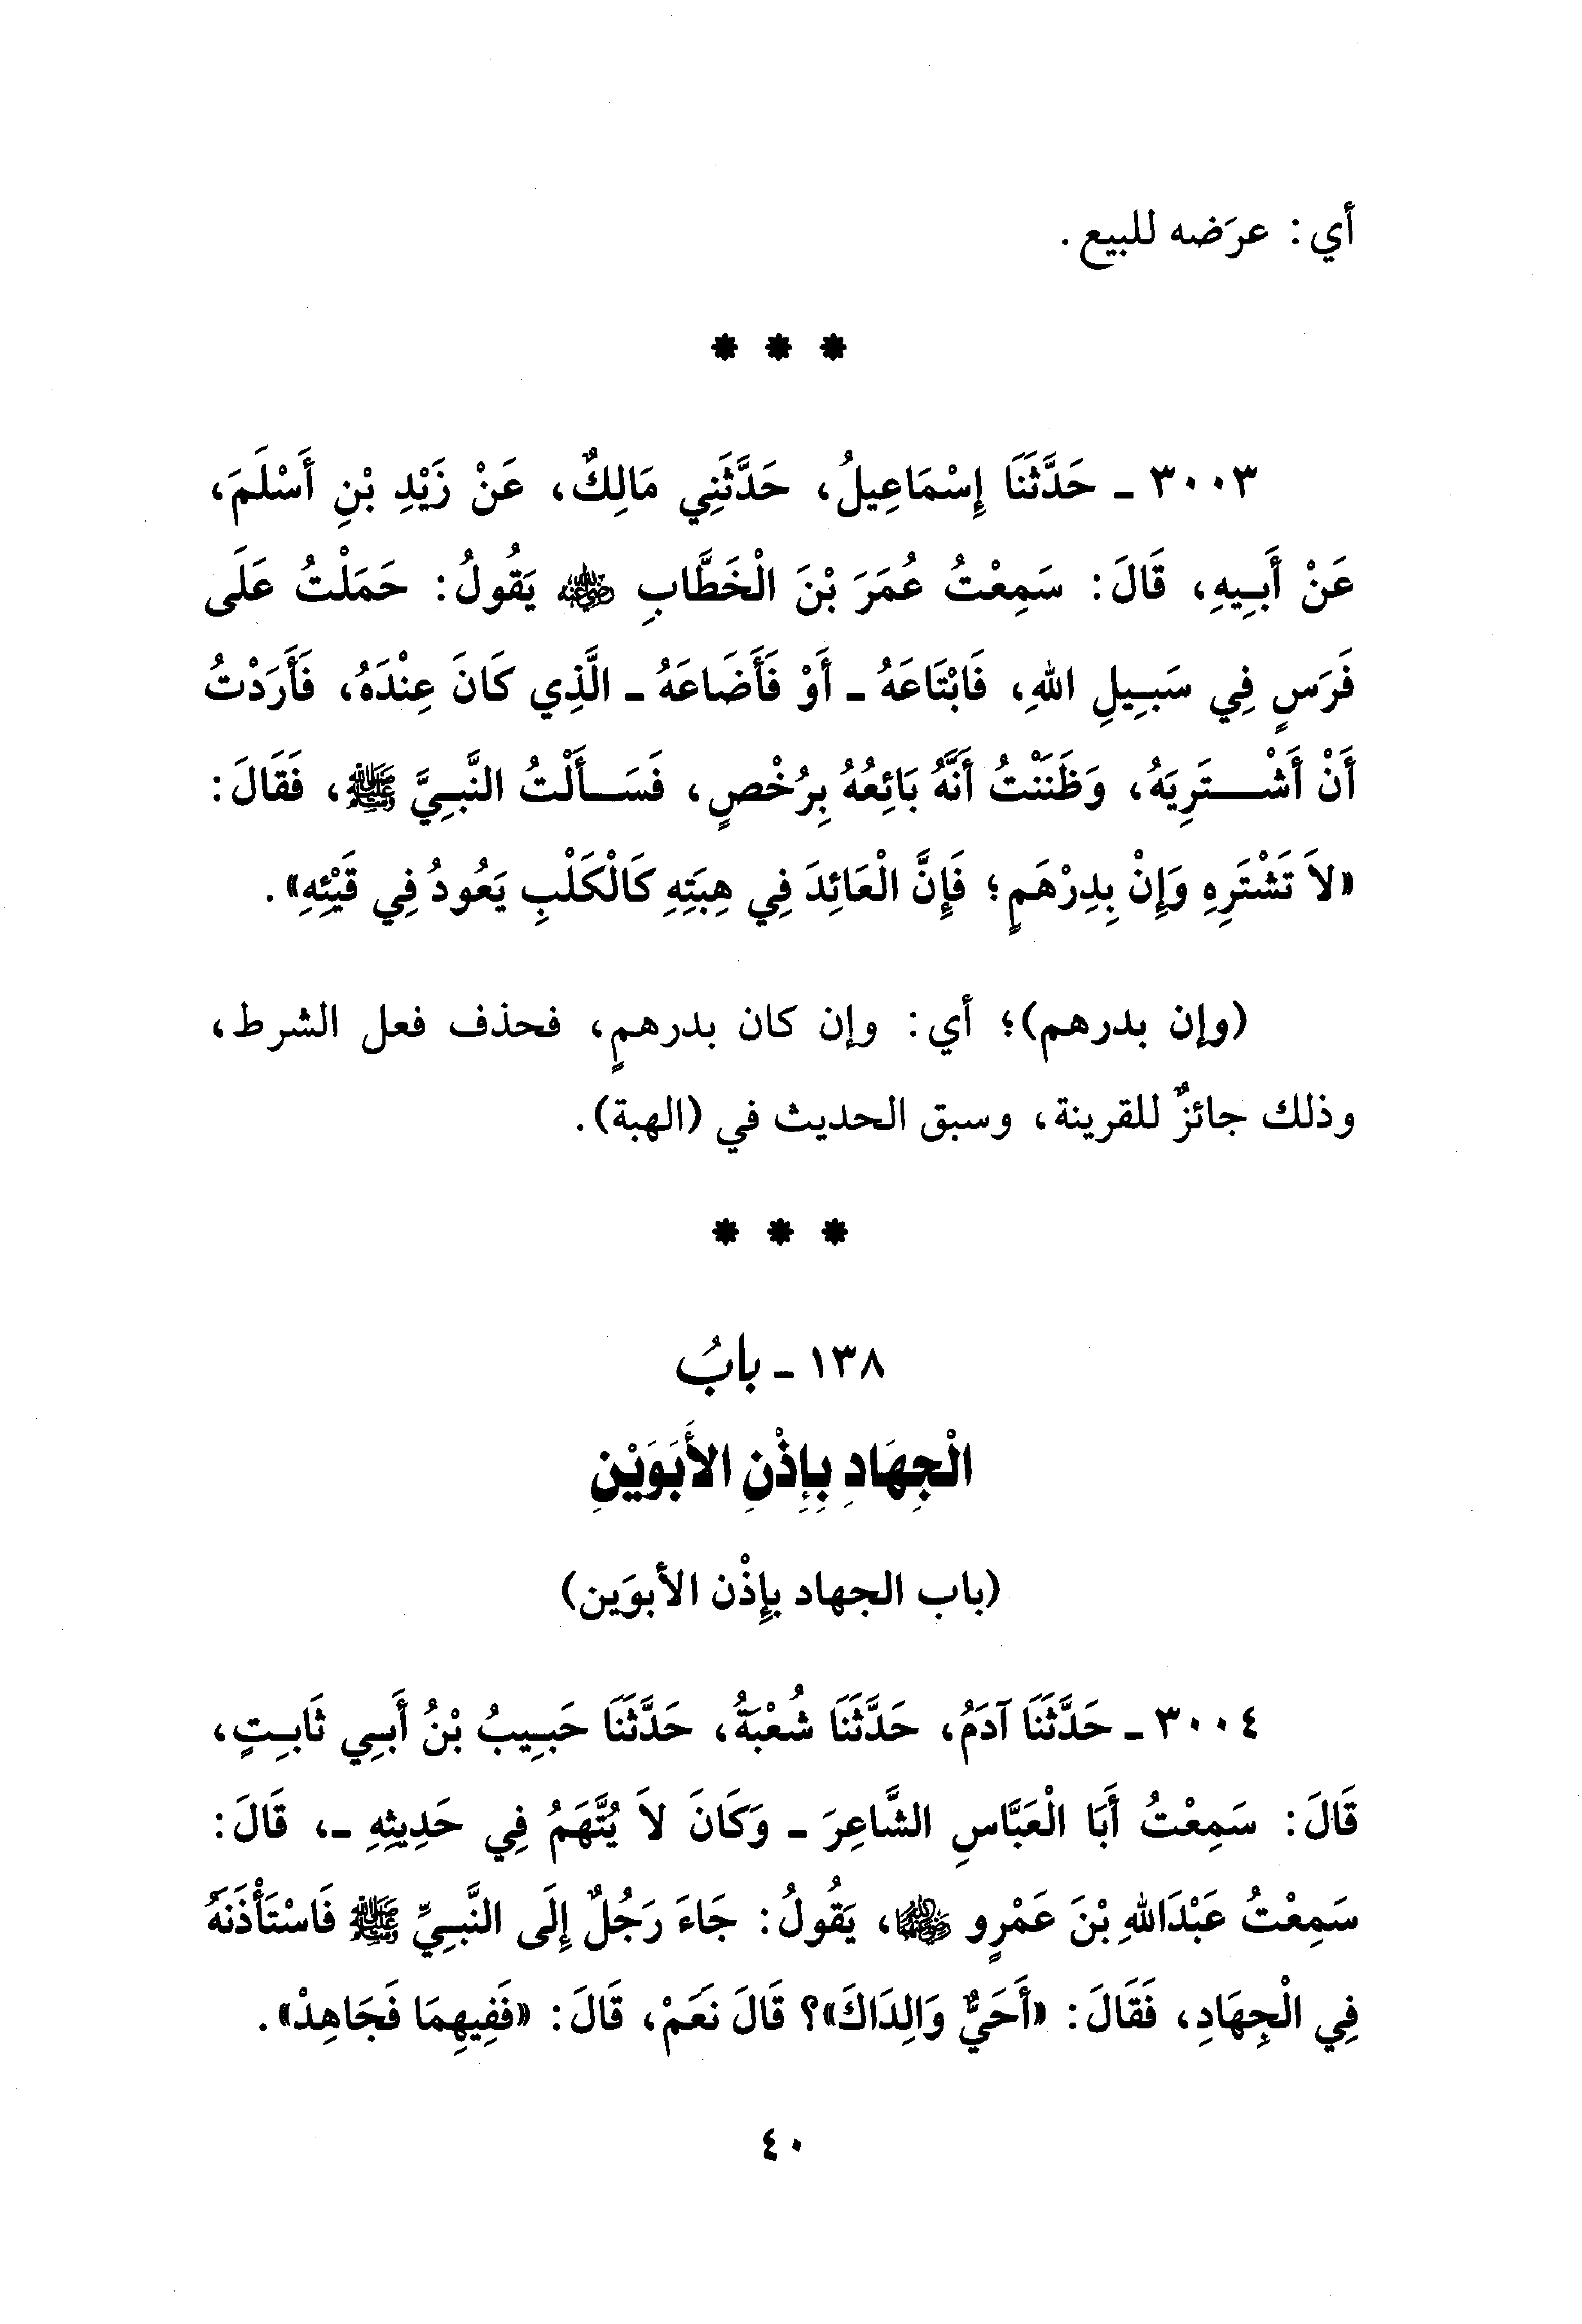 أي: عرَضه للبيع.
* * *
٣٠٠٣ ـ حَدَّثَنَا إِسْمَاعِيلُ، حَدَّثَنِي مَالِكٌ، عَنْ زَيْدِ بْنِ أَسْلَمَ،
عَنْ أَبِيهِ، قَالَ: سَمِعْتُ عُمَرَ بْنَ الْخَطَّابِ رضي الله عنه يَقُولُ: حَمَلْتُ عَلَى
فَرَسٍ فِي سَبِيلِ اللهِ، فَابْتَاعَهُ ـ أَوْ فَأَضَاعَهُ ـ الَّذِي كَانَ عِنْدَهُ، فَأَرَدْتُ
أَنْ أَشْتَرِيَهُ، وَظَنَنْتُ أَنَّهُ بَائِعُهُ بِرُخْصٍ، فَسَأَلْتُ النَّبِيَّ ﷺ، فَقَالَ:
«لاَ تَشْتَرِهِ وَإِنْ بِدِرْهَمٍ؛ فَإِنَّ الْعَائِدَ فِي هِبَتِهِ كَالْكَلْبِ يَعُودُ فِي قَيْئِهِ».
(وإن بدرهم)؛ أي: وإن كان بدرهمٍ، فحذف فعل الشرط،
وذلك جائزٌ للقرينة، وسبق الحديث في (الهبة).
* * *
١٣٨ ـ بابُ
الْجِهَادِ بِإِذْنِ الأَبَوَيْنِ
(باب الجهاد بإِذْن الأبوَين)
٣٠٠٤ ـ حَدَّثَنَا آدَمُ، حَدَّثَنَا شُعْبَةُ، حَدَّثَنَا حَبِيبُ بْنُ أَبِي ثَابِتٍ،
قَالَ: سَمِعْتُ أَبَا الْعَبَّاسِ الشَّاعِرَ ـ وَكَانَ لاَ يُتَّهَمُ فِي حَدِيثِهِ ـ، قَالَ:
سَمِعْتُ عَبْدَاللهِ بْنَ عَمْرٍو رضي الله عنهما، يَقُولُ: جَاءَ رَجُلٌ إِلَى النَّبِيِّ ﷺ فَاسْتَأْذَنَهُ
فِي الْجِهَادِ، فَقَالَ: «أَحَيٌّ وَالِدَاكَ»؟ قَالَ نَعَمْ، قَالَ: «فَفِيهِمَا فَجَاهِدْ».
٤٠